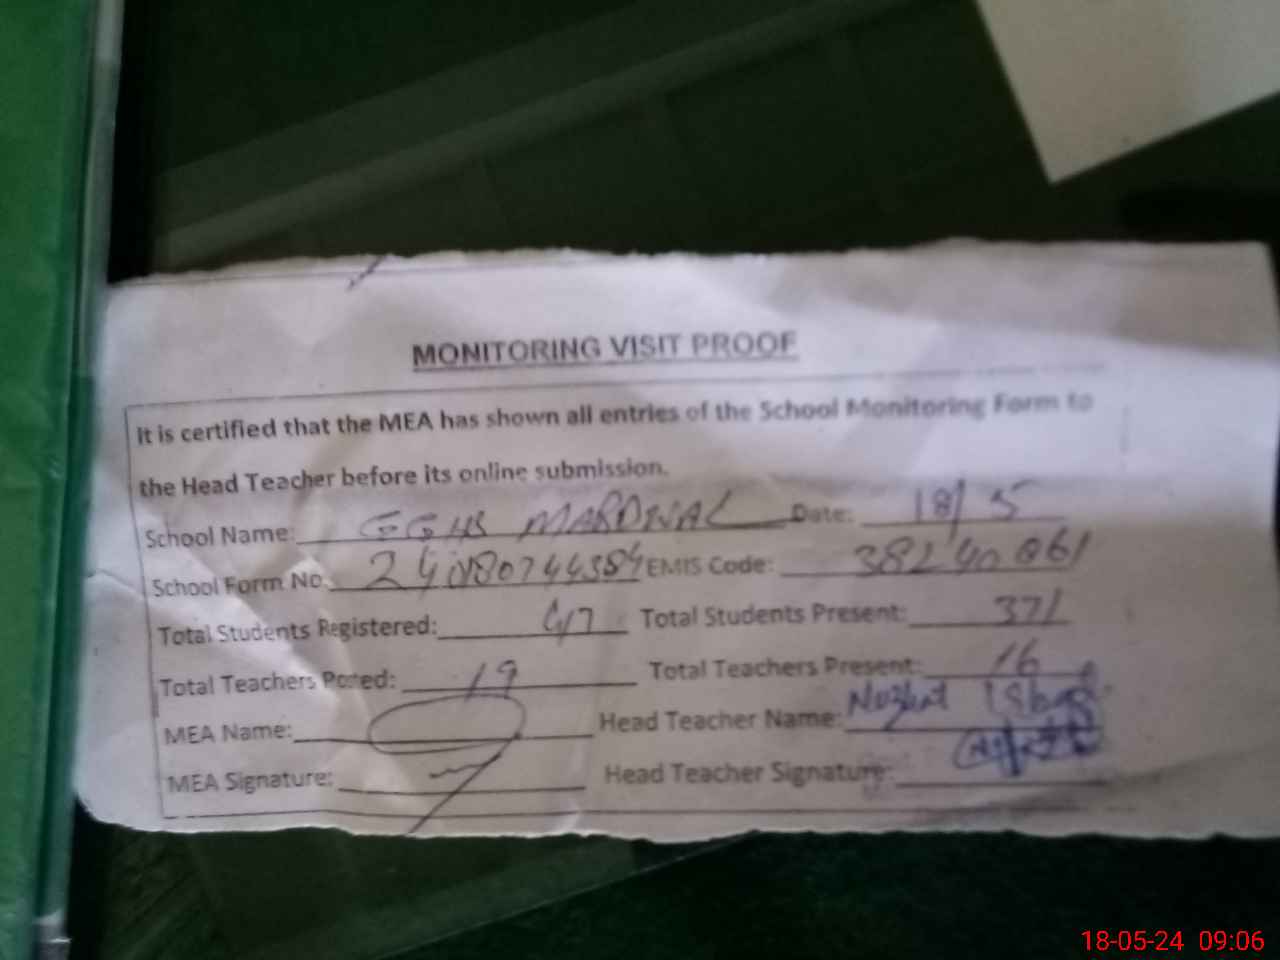 MONITORING VISIT PROOF
It is certified that the MEA has shown all entries of the School Monitoring Form to
the Head Teacher before its online submission.
School Name: GGHS MARDWAL Date: 18/5
School Form No. EMIS Code: 38240061
Total Students Registered: 417 Total Students Present: 371
Total Teachers Posted: 19 Total Teachers Present: 16
MEA Name: Head Teacher Name: Nuzhat
MEA Signature: Head Teacher Signature:
18-05-24 09:06